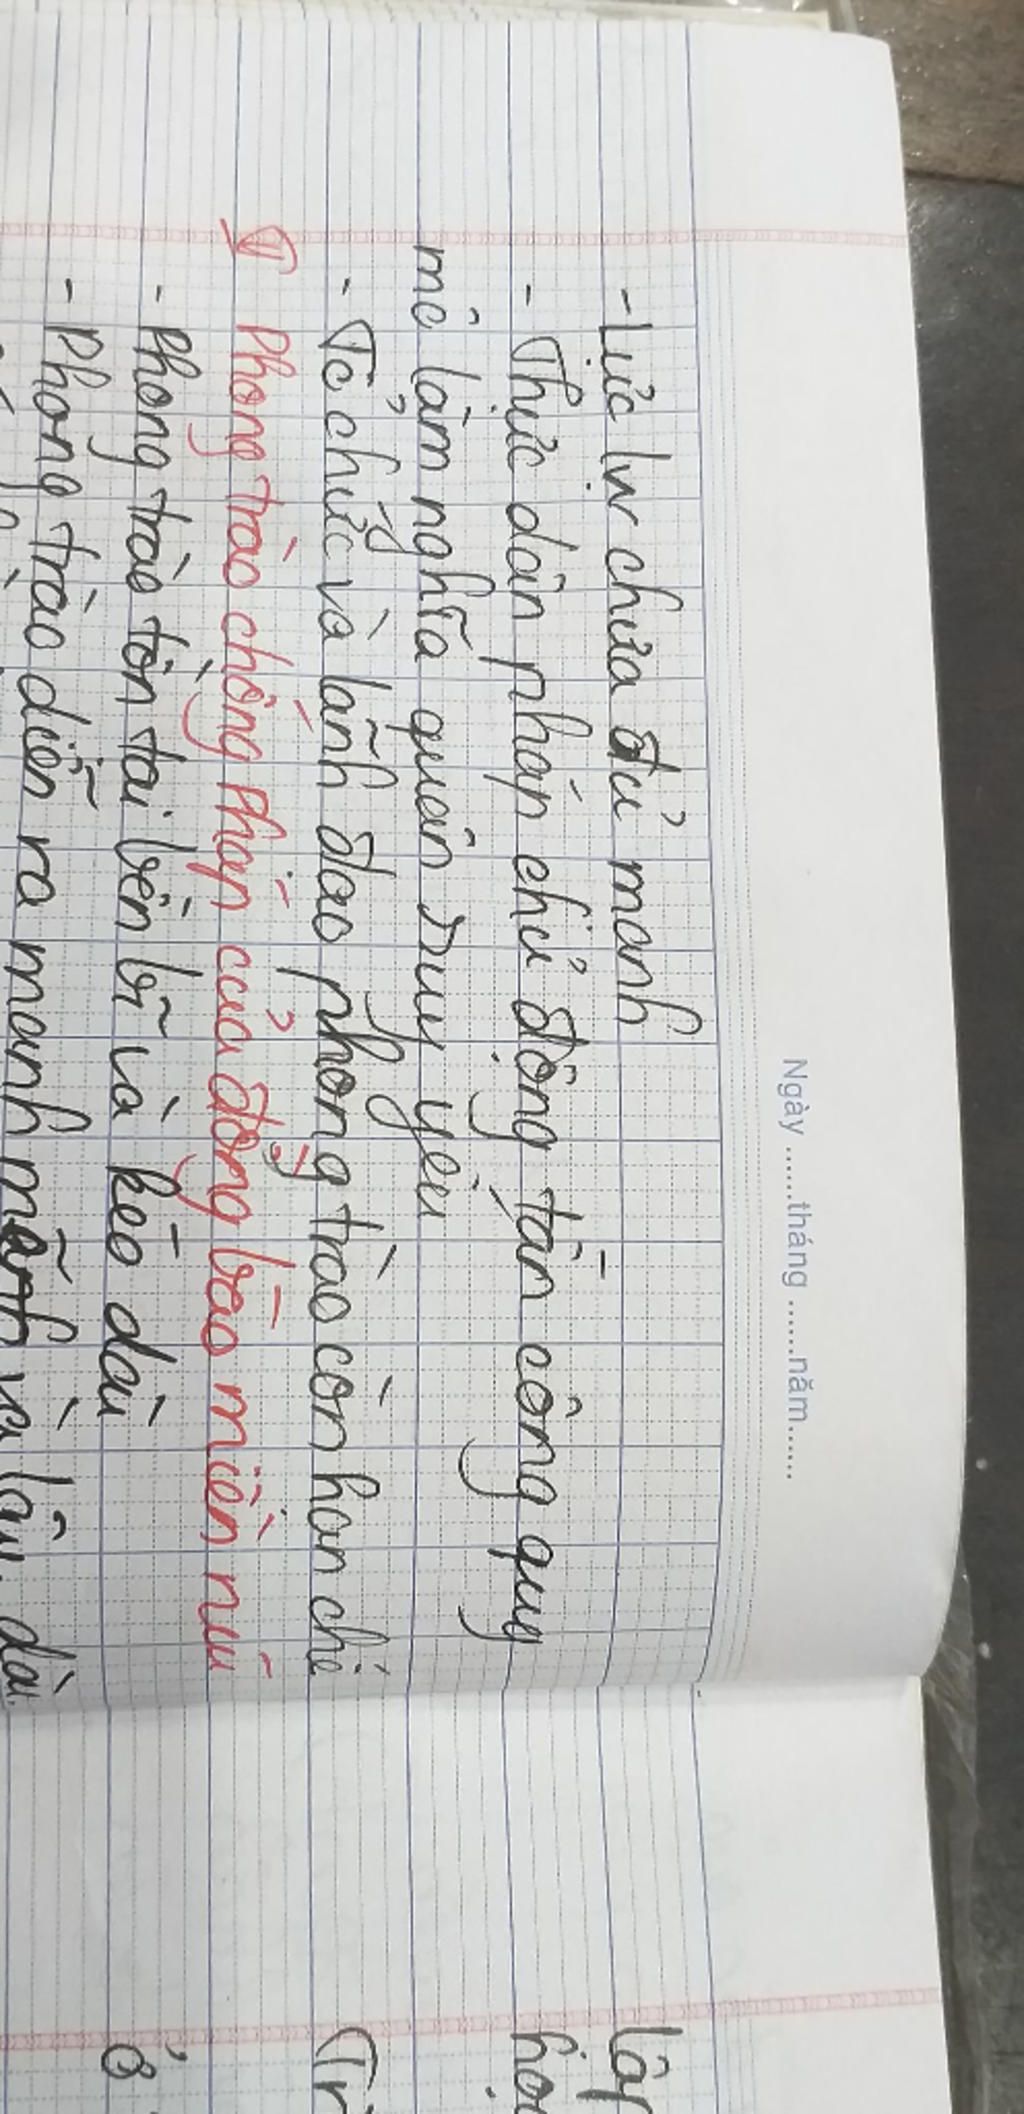 Ngày ......tháng ......năm......
- Lực lw chưa đủ mạnh
- Thực dân pháp chủ động tấn công quy
mô làm nghĩa quân suy yếu
- Tổ chức và lãnh đạo phong trào còn hạn chế
Phong trào chống Pháp của đồng bào miền núi
- Phong trào tồn tại bền bỉ và kéo dài
- Phong trào diễn ra mạnh mẽ và lâu dài